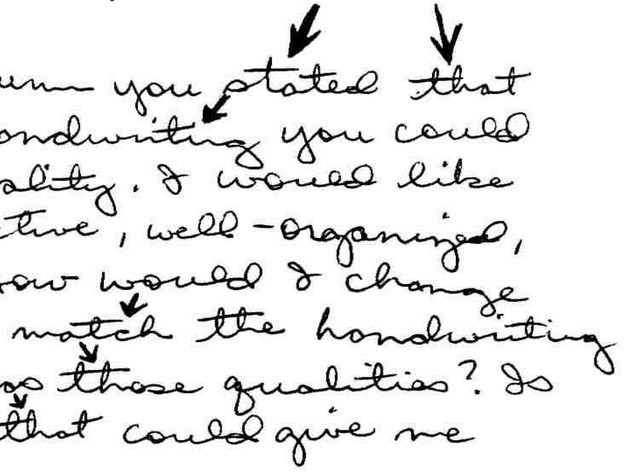 you stated that
handwriting you could
ality. I would like
ctive, well-organized,
how would I change
match the handwriting
as those qualities? Is
that could give me